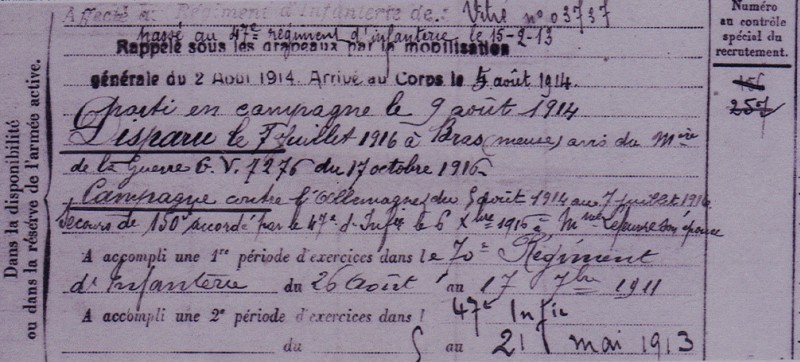 Affecté au Régiment d'Infanterie de: Vitré n° 03737
passé au 47e régiment d'infanterie le 15-2-13
Rappelé sous les drapeaux par la mobilisation
générale du 2 Août 1914. Arrivé au Corps le 5 août 1914.
parti en campagne le 9 août 1914
Disparu le 7 Juillet 1916 à Bras (meuse) avis du Mère
de la Guerre G.V. 7276 du 17 octobre 1916
Campagne contre l'Allemagne, du 5 août 1914 au 7 juillet 1916
Secours de 150f accordé par le 47e d'Infie le 6 Xbre 1916 à Mme son épouse
A accompli une 1re période d'exercices dans le 70e Régiment
d'Infanterie du 26 août au 17 7bre 1911
A accompli une 2e période d'exercices dans l 47e Infie
du 5 au 21 mai 1913
Dans la disponibilité
ou dans la réserve de l'armée active.
Numéro
au contrôle
spécial du
recrutement.
257